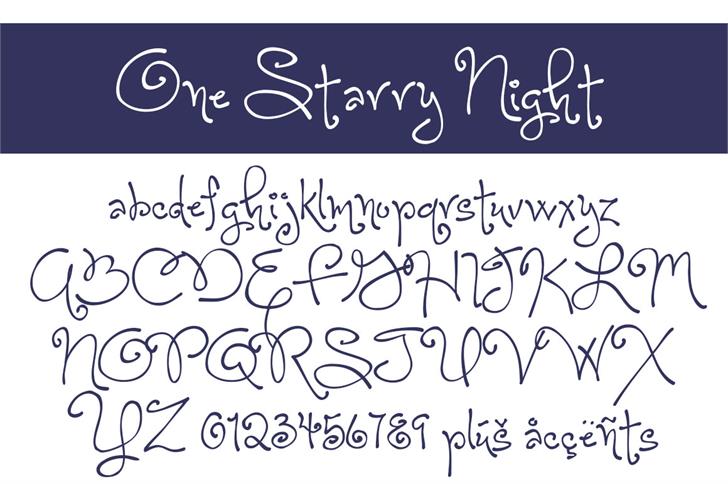 One Starry Night
abcdefghijklmnopqrstuvwxyz
ABCDEFGHIJKLM
NOPQRSTUVWX
YZ 0123456789 plúš åcçëñts